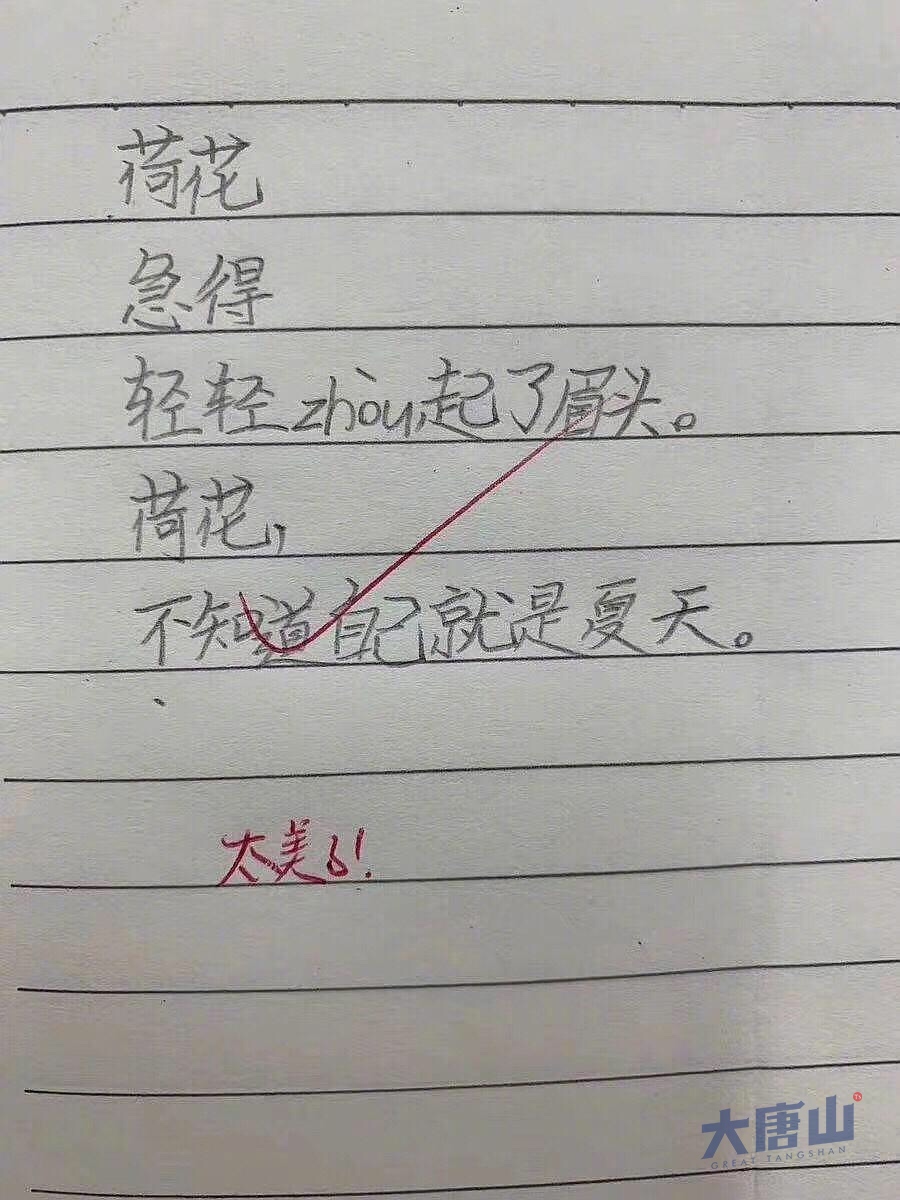 荷花
急得
轻轻zhòu起了眉头。
荷花，
不知道自己就是夏天。
太美了！
大唐山
GREAT TANGSHAN